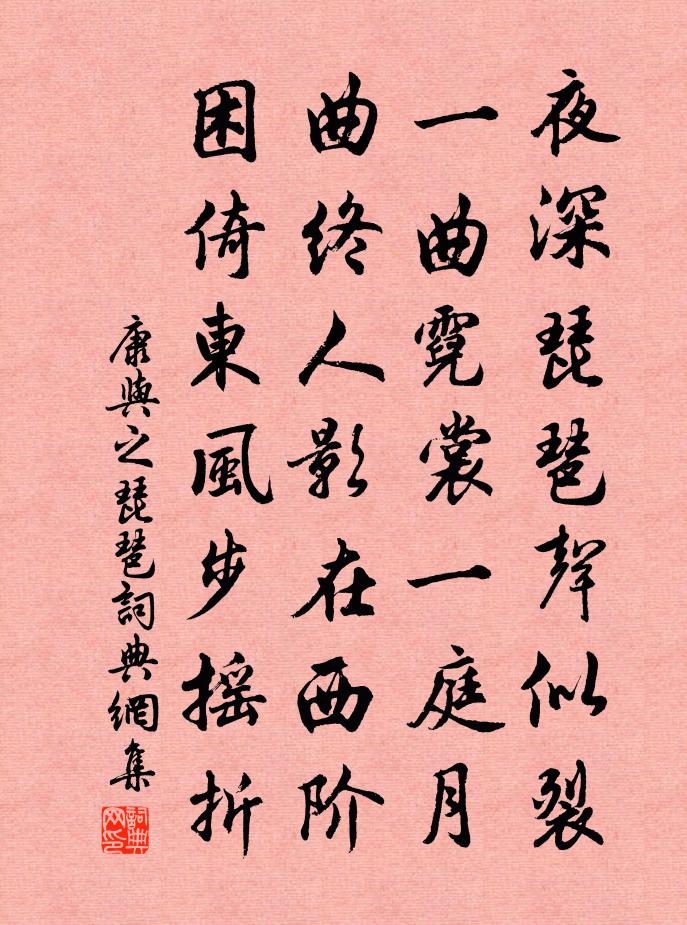 夜深琵琶聲似裂
一曲霓裳一庭月
曲终人影在西阶
困倚東風步摇折
康與之琵琶詞典網集
詞典网印